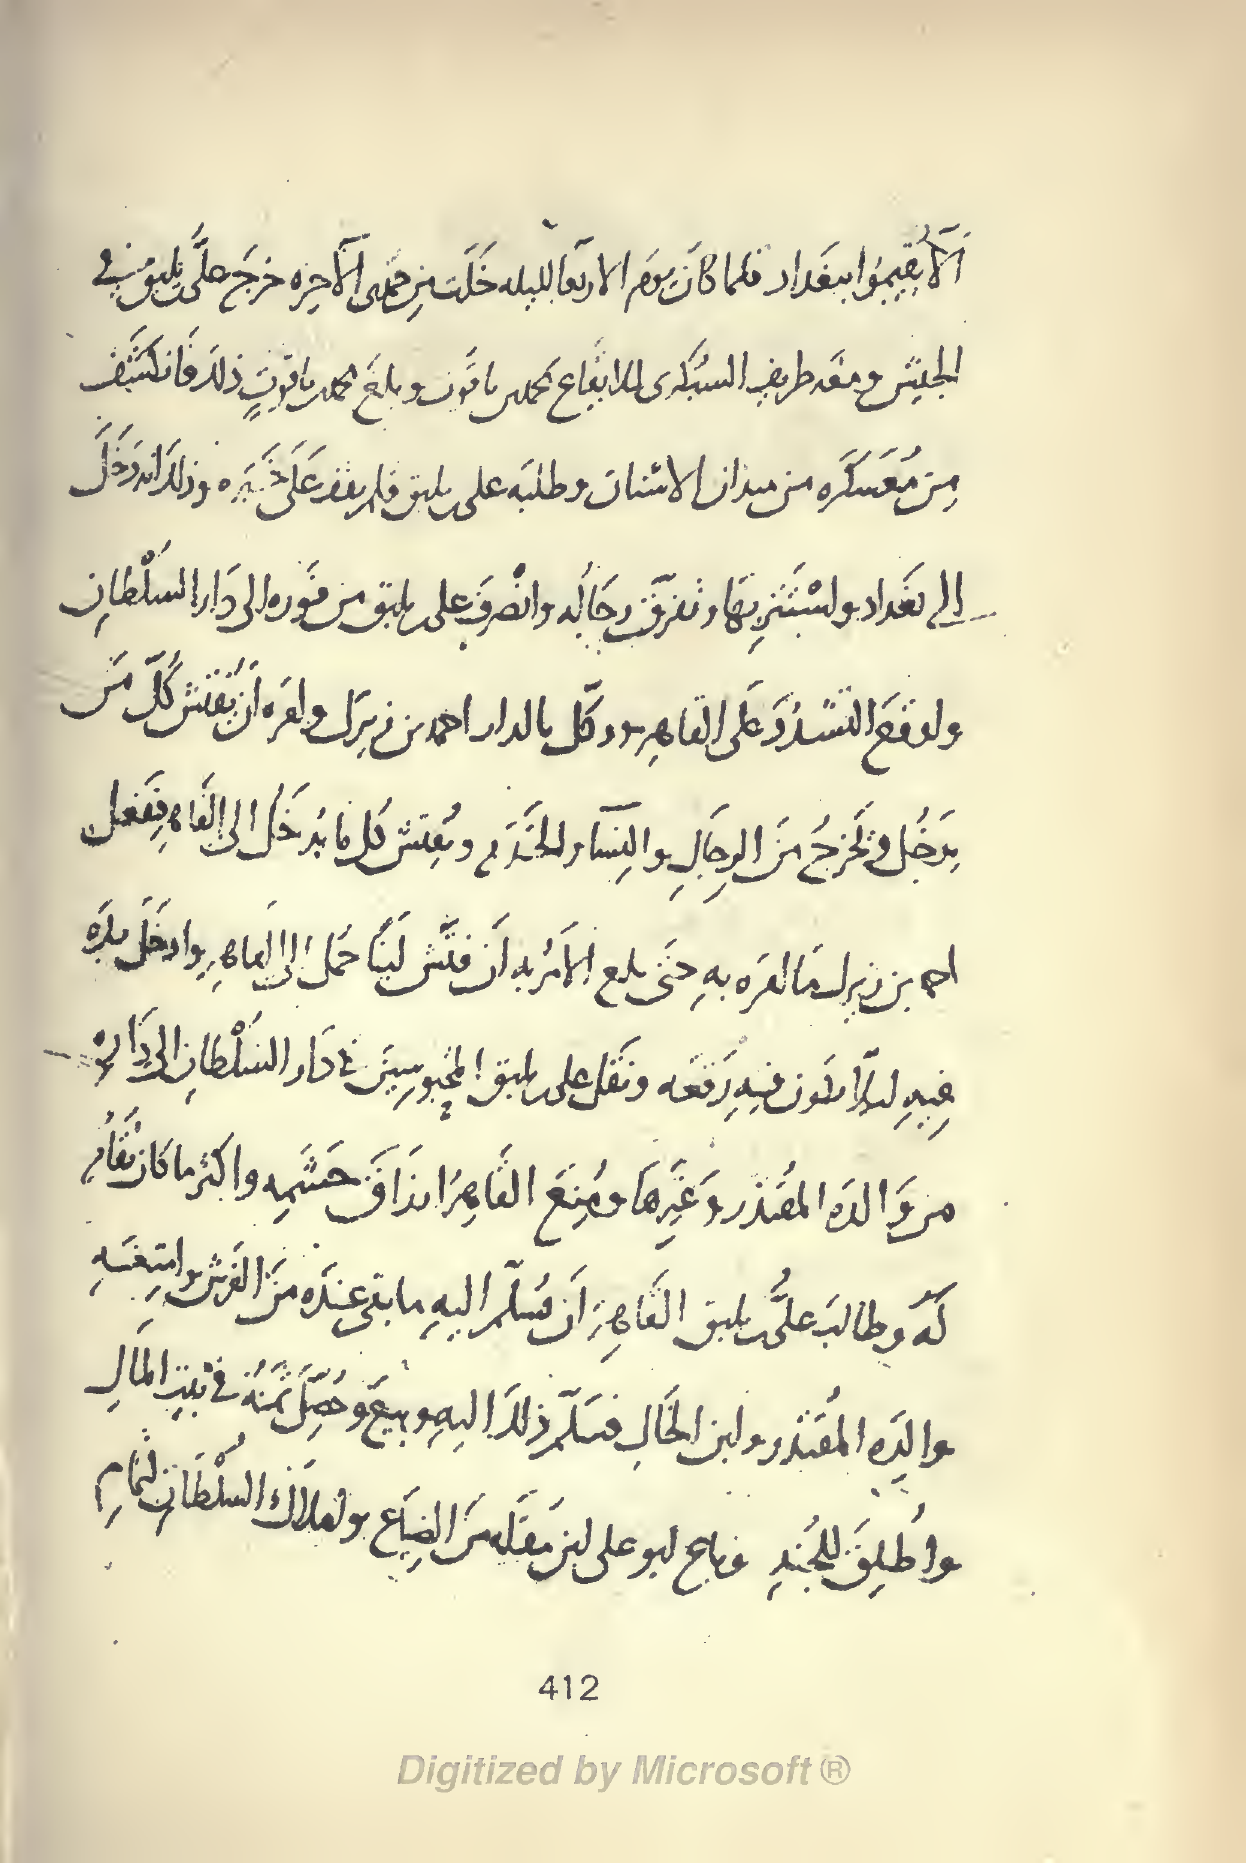 أَلَّا يُقِيمُوا ببغَداد فلما كَانَ يومَ الاربَعَا لليله خَلَت مِن جمدى الآخِره خرَجَ علىُّ بن يلبق في
الجيش ومعَه طريف السبُكَرى للايقاع بمحمد بن ياقوت وبلغَ محمد بن ياقوتٍ ذلكَ فَانكشَف
مِن مُعَسكَره من ميدان الاشنان وطلبَه على بن يلبق فلم يقف عَلى خَبَره وذلك انه دَخَلَ
إلى بَغداد واسْتَتَر بهَا وتفرّقت رجَالُه وانْصرفَ على بن يلبق من فَوره الى دَار السُلْطانِ
واوقَع التشدُّدَ عَلى القاهِر ووكّل بالدار احمد بن زيرَك وامرَه أن يُفَتّش كُلَّ مَن
يدخُل ويَخرجُ منَ الرِجَالِ والنِسَآء والخَدَم ويُفتش كل مَا يُدخَلُ الى القَاهِر ففعل
احمد بن زيرك مَا امرَه بهِ حتى بلغ الأمرُ به أن فتّش لَبَنًا حُمل إلى القاهر وادخَلَ يدَه
فيهِ ليلّا يكون فيهِ رُقعَه ونَقَل على بن يلبق المحبُوسِينَ في دَار السُلْطان الى دَاره
من وَالدَه المقتَدر وَغَيرهَا ومُنِعَ القَاهِرُ ارزَاقَ حشَمِه واكثر ما كَان يُقَامُ
لَهُ وطالبَ علىُّ بن يلبق القَاهِرَ أن يُسَلّم اليهِ ما بقى عندَه منَ الفرش وامتعَه
والِدَه المُقتَدر وابن الخَالِ فسَلّم ذلكَ اليهِ وبيعَ وحُصِّل ثمنُه في بَيت المَالِ
واُطلِقَ للجُندِ وباع ابو على ابن مقلَه منَ الضِيَاع والاملاك السُلْطَانيه لتمَام
412
Digitized by Microsoft ®